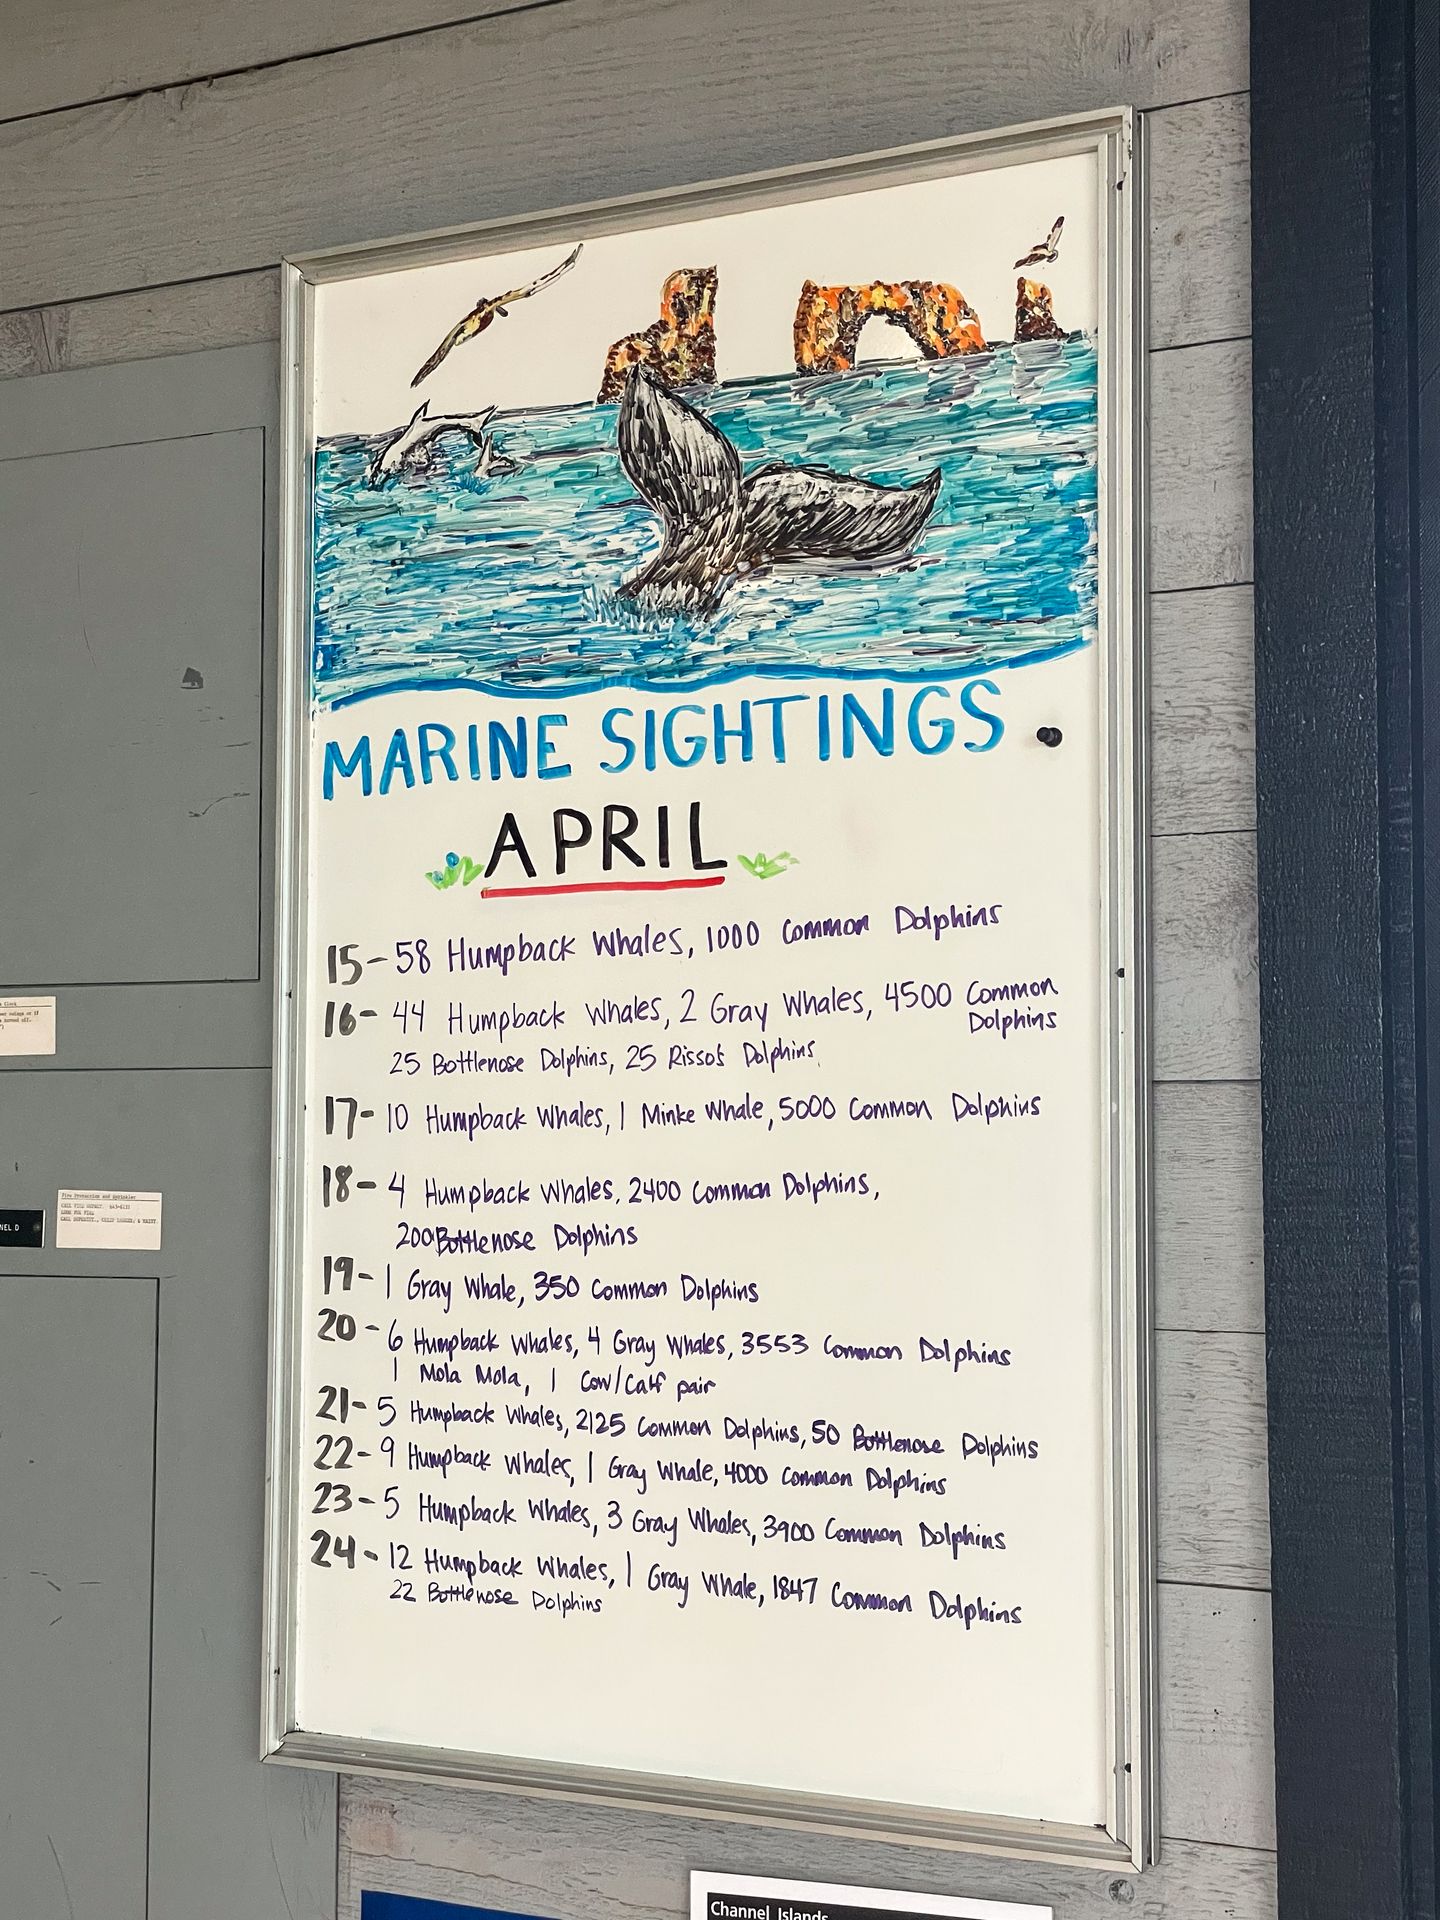 MARINE SIGHTINGS
APRIL
15- 58 Humpback Whales, 1000 Common Dolphins
16- 44 Humpback Whales, 2 Gray Whales, 4500 Common
Dolphins
25 Bottlenose Dolphins, 25 Risso's Dolphins
17- 10 Humpback Whales, 1 Minke Whale, 5000 Common Dolphins
18- 4 Humpback Whales, 2400 Common Dolphins,
200 Bottlenose Dolphins
19- 1 Gray Whale, 350 Common Dolphins
20- 6 Humpback Whales, 4 Gray Whales, 3553 Common Dolphins
1 Mola Mola, 1 Cow/Calf pair
21- 5 Humpback Whales, 2125 Common Dolphins, 50 Bottlenose Dolphins
22- 9 Humpback Whales, 1 Gray Whale, 4000 Common Dolphins
23- 5 Humpback Whales, 3 Gray Whales, 3900 Common Dolphins
24- 12 Humpback Whales, 1 Gray Whale, 1847 Common Dolphins
22 Bottlenose Dolphins
Fire Protection and Sprinkler
NEL D
Channel Islands